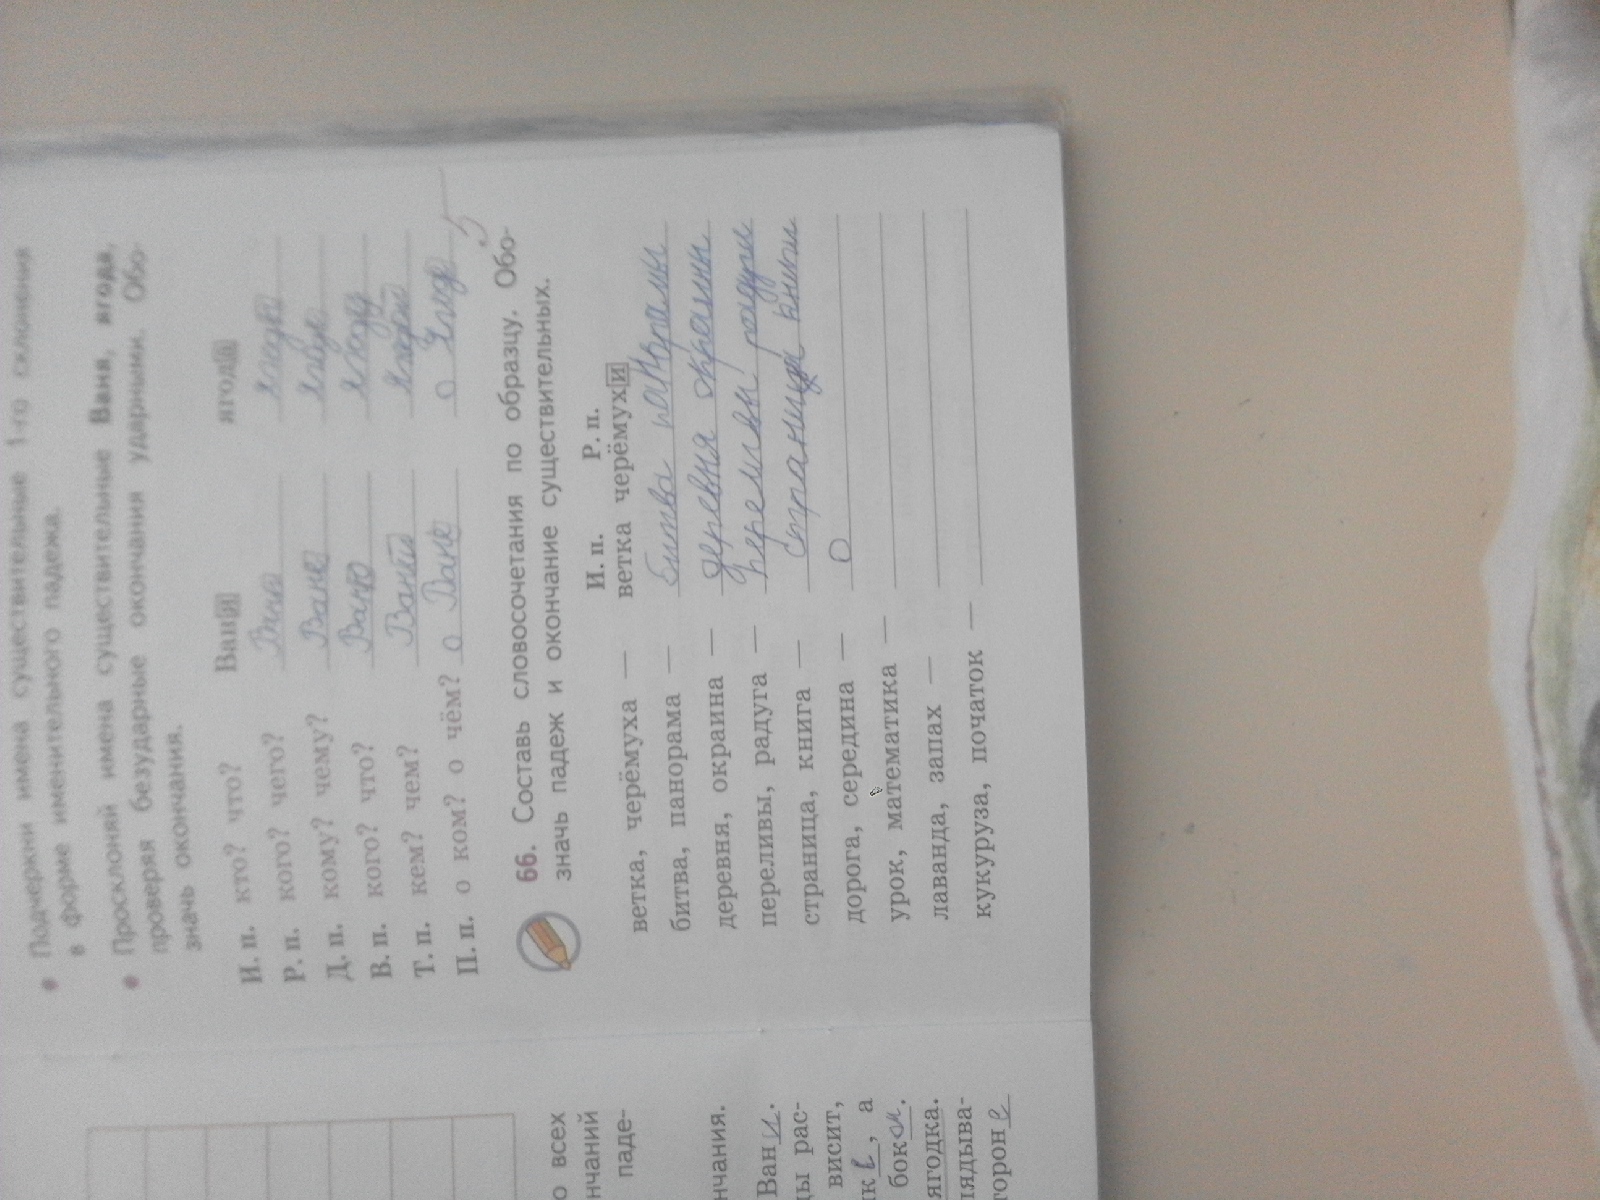 • Подчеркни имена существительные 1-го склонения
в форме именительного падежа.
• Просклоняй имена существительные Ваня, ягода,
проверяя безударные окончания ударными. Обо-
значь окончания.
И. п. кто? что? Ваня ягода
Р. п. кого? чего?
Д. п. кому? чему? Ване
В. п. кого? что? Ваню ягоду
Т. п. кем? чем? Ваней
П. п. о ком? о чём? о Ване о
66. Составь словосочетания по образцу. Обо-
значь падеж и окончание существительных.
И. п. Р. п.
ветка, черёмуха — ветка черёмухи
битва, панорама — битва
деревня, окраина — деревня окраины
переливы, радуга — переливы радуги
страница, книга — страница книги
дорога, середина —
урок, математика —
лаванда, запах —
кукуруза, початок —
о всех
нчаний
паде-
нчания.
Вани.
ды рас-
висит,
, а
ягодка.
лядыва-
тороне